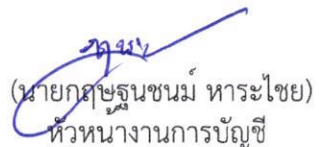 (นายกฤษฐนชนม์ หาระไชย)
หัวหน้างานการบัญชี